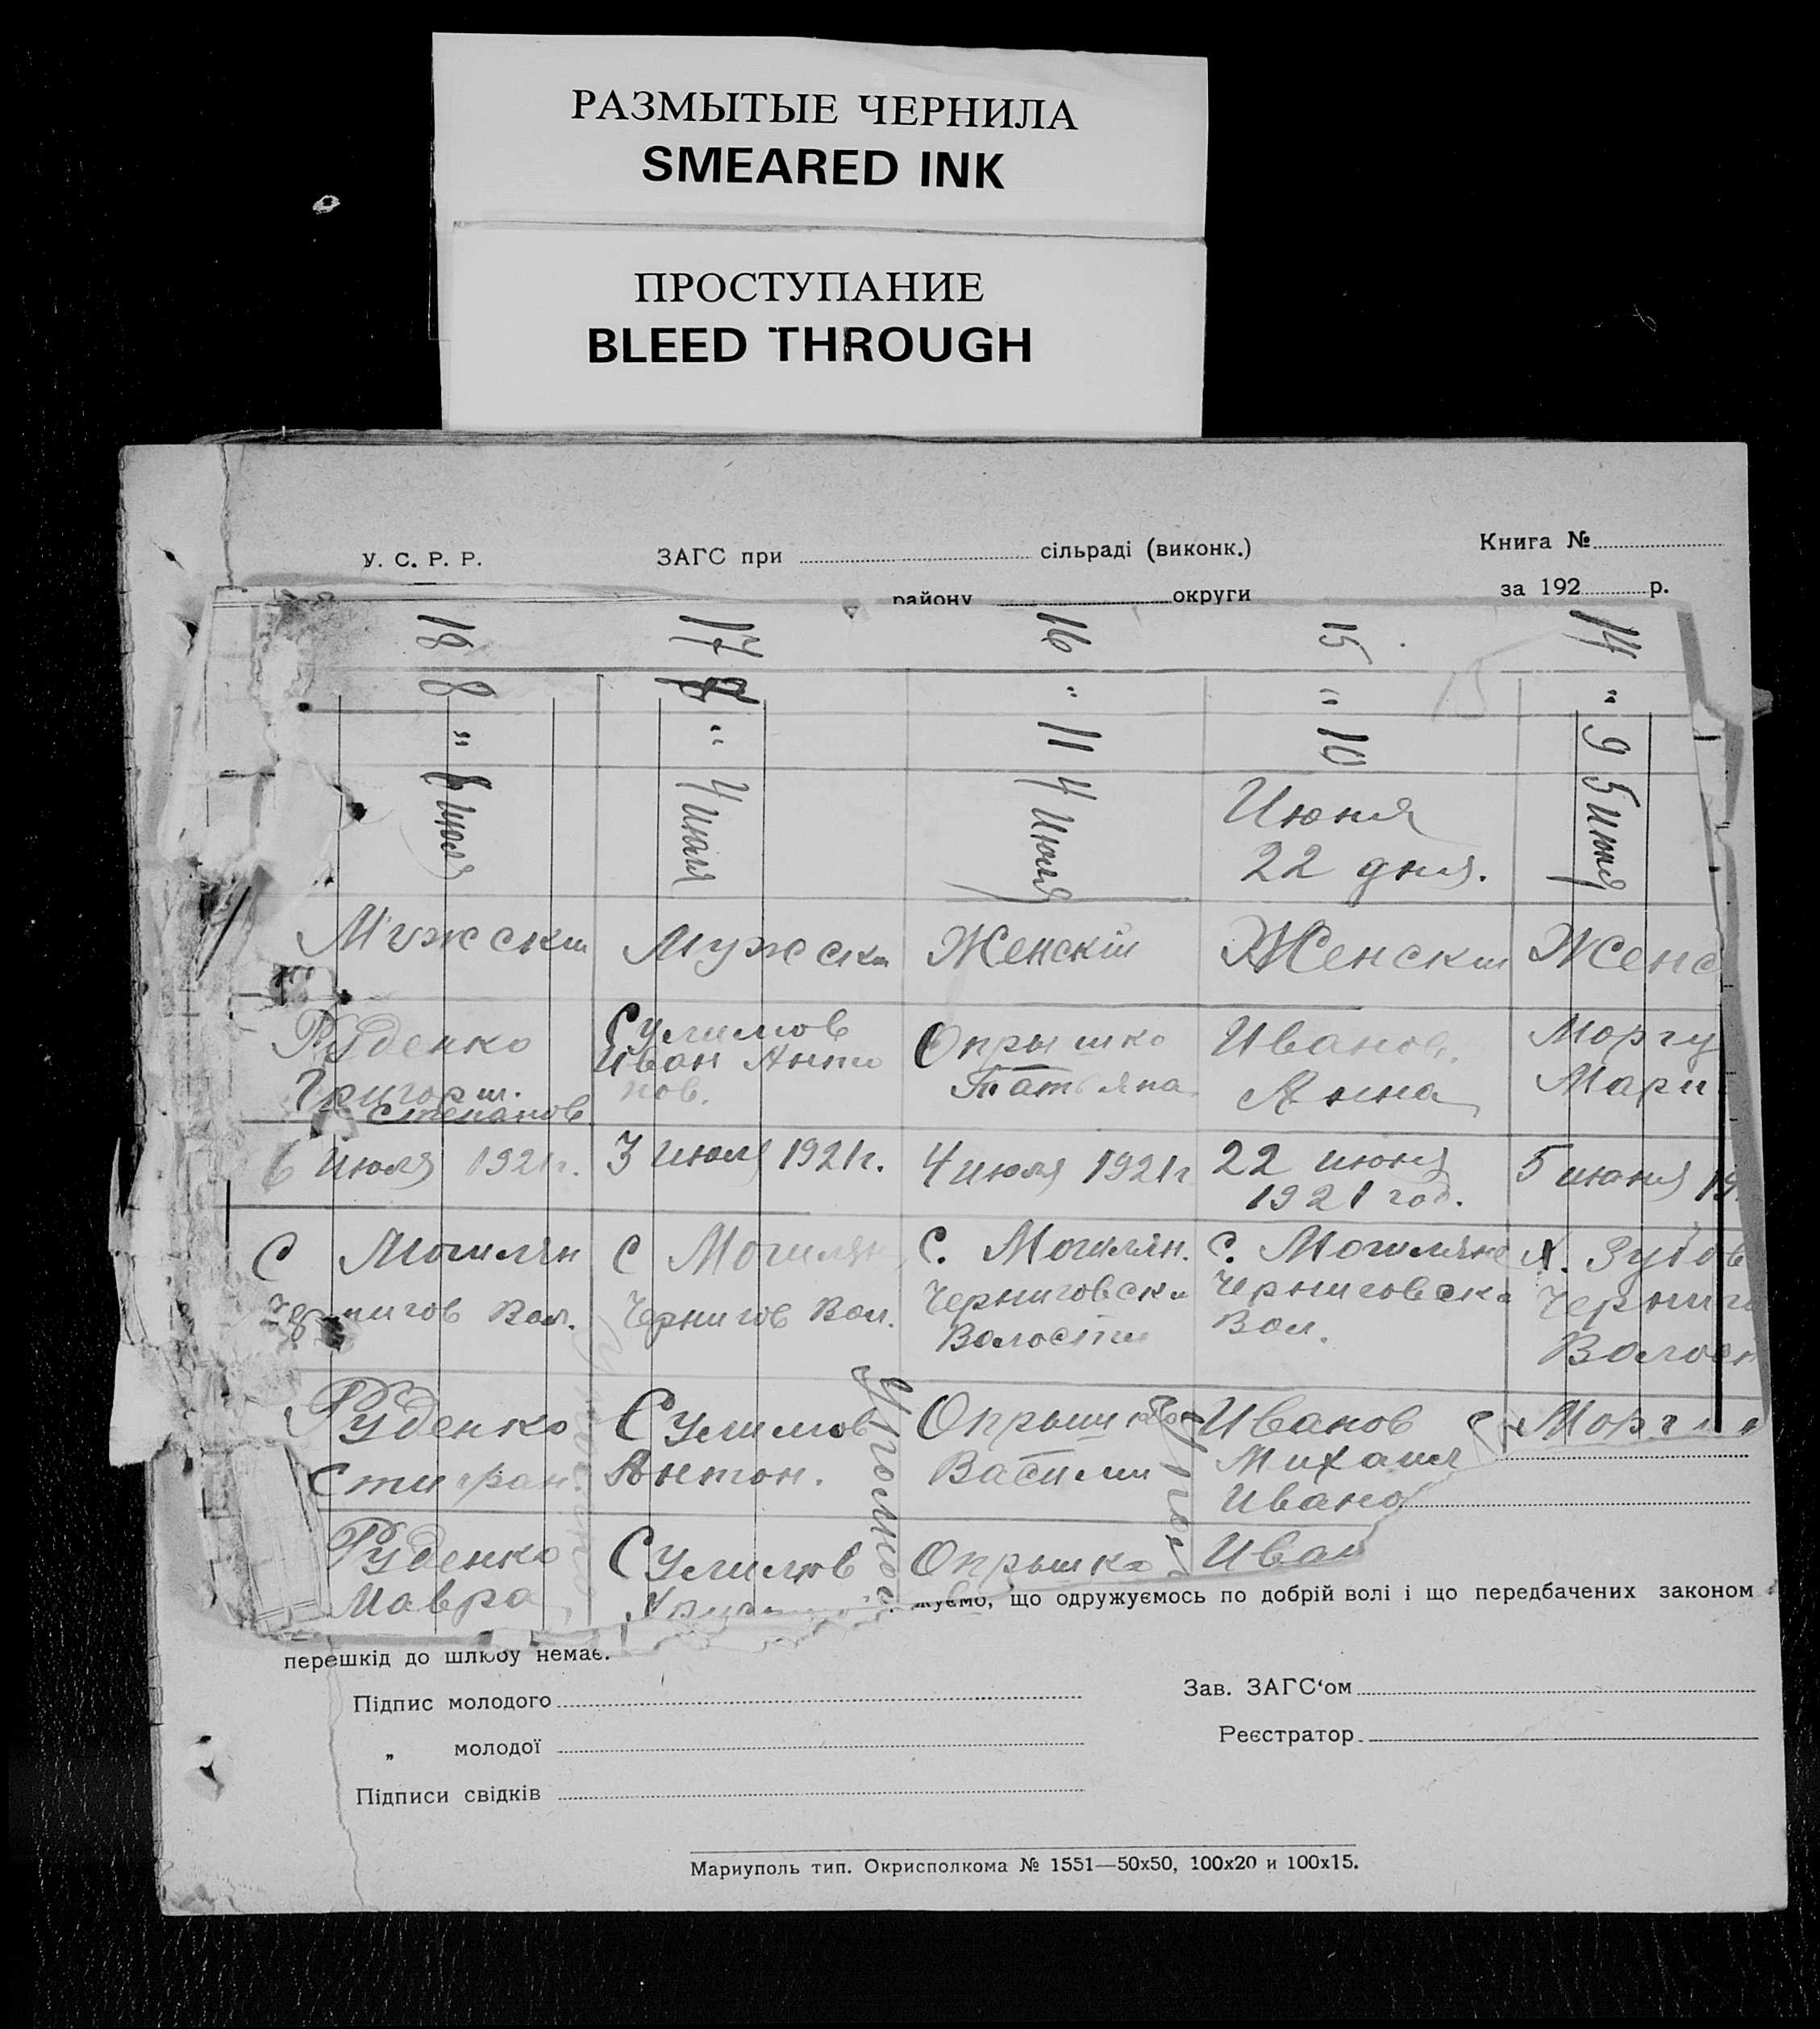 РАЗМЫТЫЕ ЧЕРНИЛА
SMEARED INK
ПРОСТУПАНИЕ
BLEED THROUGH
У. С. Р. Р.
ЗАГС при сільраді (виконк.)
Книга №
району округи
за 192 р.
18 17 16 15 14
8 " " "
" " 11 10 9
6 июля 4 июля 4 июля Июня 5 июня
22 дня.
Мужскии Мужски Женскіи Женскии Женс
Руденко Сулимов Опрышко Иванов. Моргу
Григории. Иван Анто Татьяна Анна Мари
Степанов нов.
6 июля 1921г. 3 июля 1921г. 4 июля 1921г 22 июня 5 июня 19
1921 год.
С Могилян С Могилян С. Могилян. С. Могиляне Х. Зубов
Чернигов Вол. Чернигов Вол. Черниговски Черниговска Черниго
Волости Вол. Волост
Руденко Сулимов Опрышко Иванов Морг
Стифан. Антон. Василии Михаил
Ивано
Руденко Сулимов Опрышко Иван
Мавра
жуємо, що одружуємось по добрій волі і що передбачених законом
перешкід до шлюбу немає.
Підпис молодого
Зав. ЗАГС‘ом
„ молодої
Реєстратор
Підписи свідків
Мариуполь тип. Окрисполкома № 1551—50х50, 100х20 и 100х15.